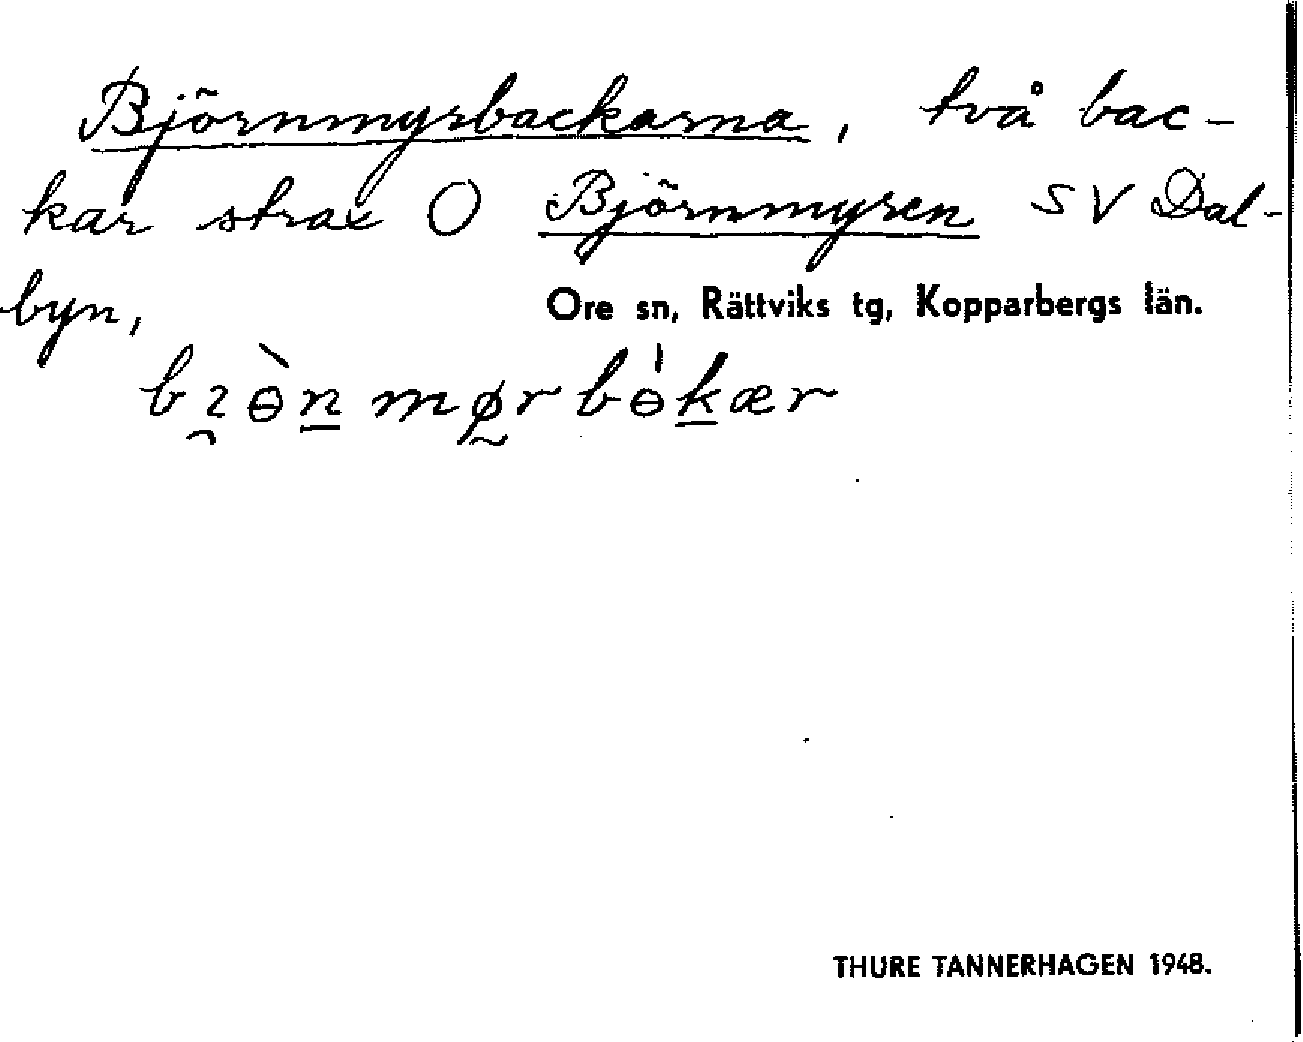 Björnmyrbackarna, två bac-
kar strax O Björnmyren SV Dal-
byn,
Ore sn, Rättviks tg, Kopparbergs län.
bɿ̯ɵ̀n̠mø̰rbɵ́k̠ær
THURE TANNERHAGEN 1948.